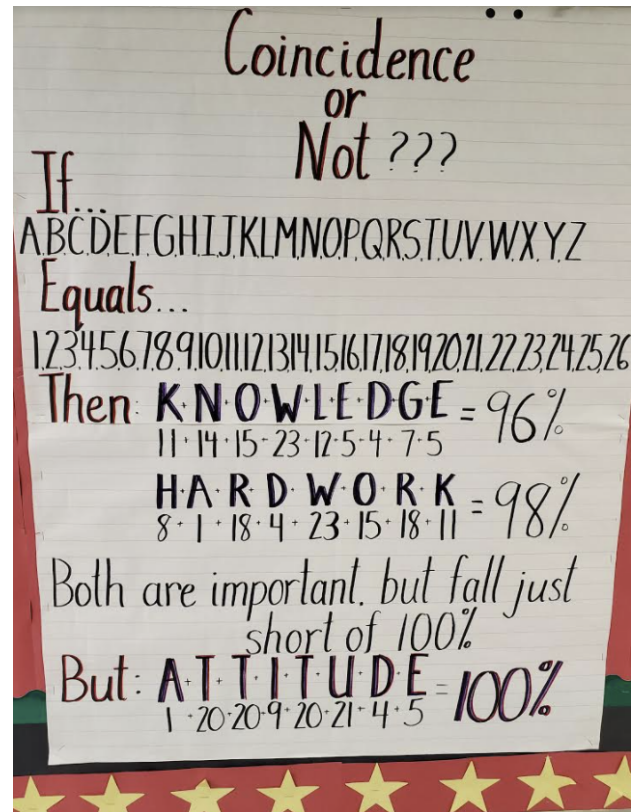 Coincidence
or
Not ???
If...
A.B.C.D.E.F.G.H.I.J.K.L.M.N.O.P.Q.R.S.T.U.V.W.X.Y.Z
Equals...
1.2.3.4.5.6.7.8.9.10.11.12.13.14.15.16.17.18.19.20.21.22.23.24.25.26
Then: K+N+O+W+L+E+D+G+E = 96%
11+14+15+23+12+5+4+7+5
H+A+R+D+W+O+R+K = 98%
8+1+18+4+23+15+18+11
Both are important, but fall just
short of 100%
But: A+T+T+I+T+U+D+E = 100%
1+20+20+9+20+21+4+5